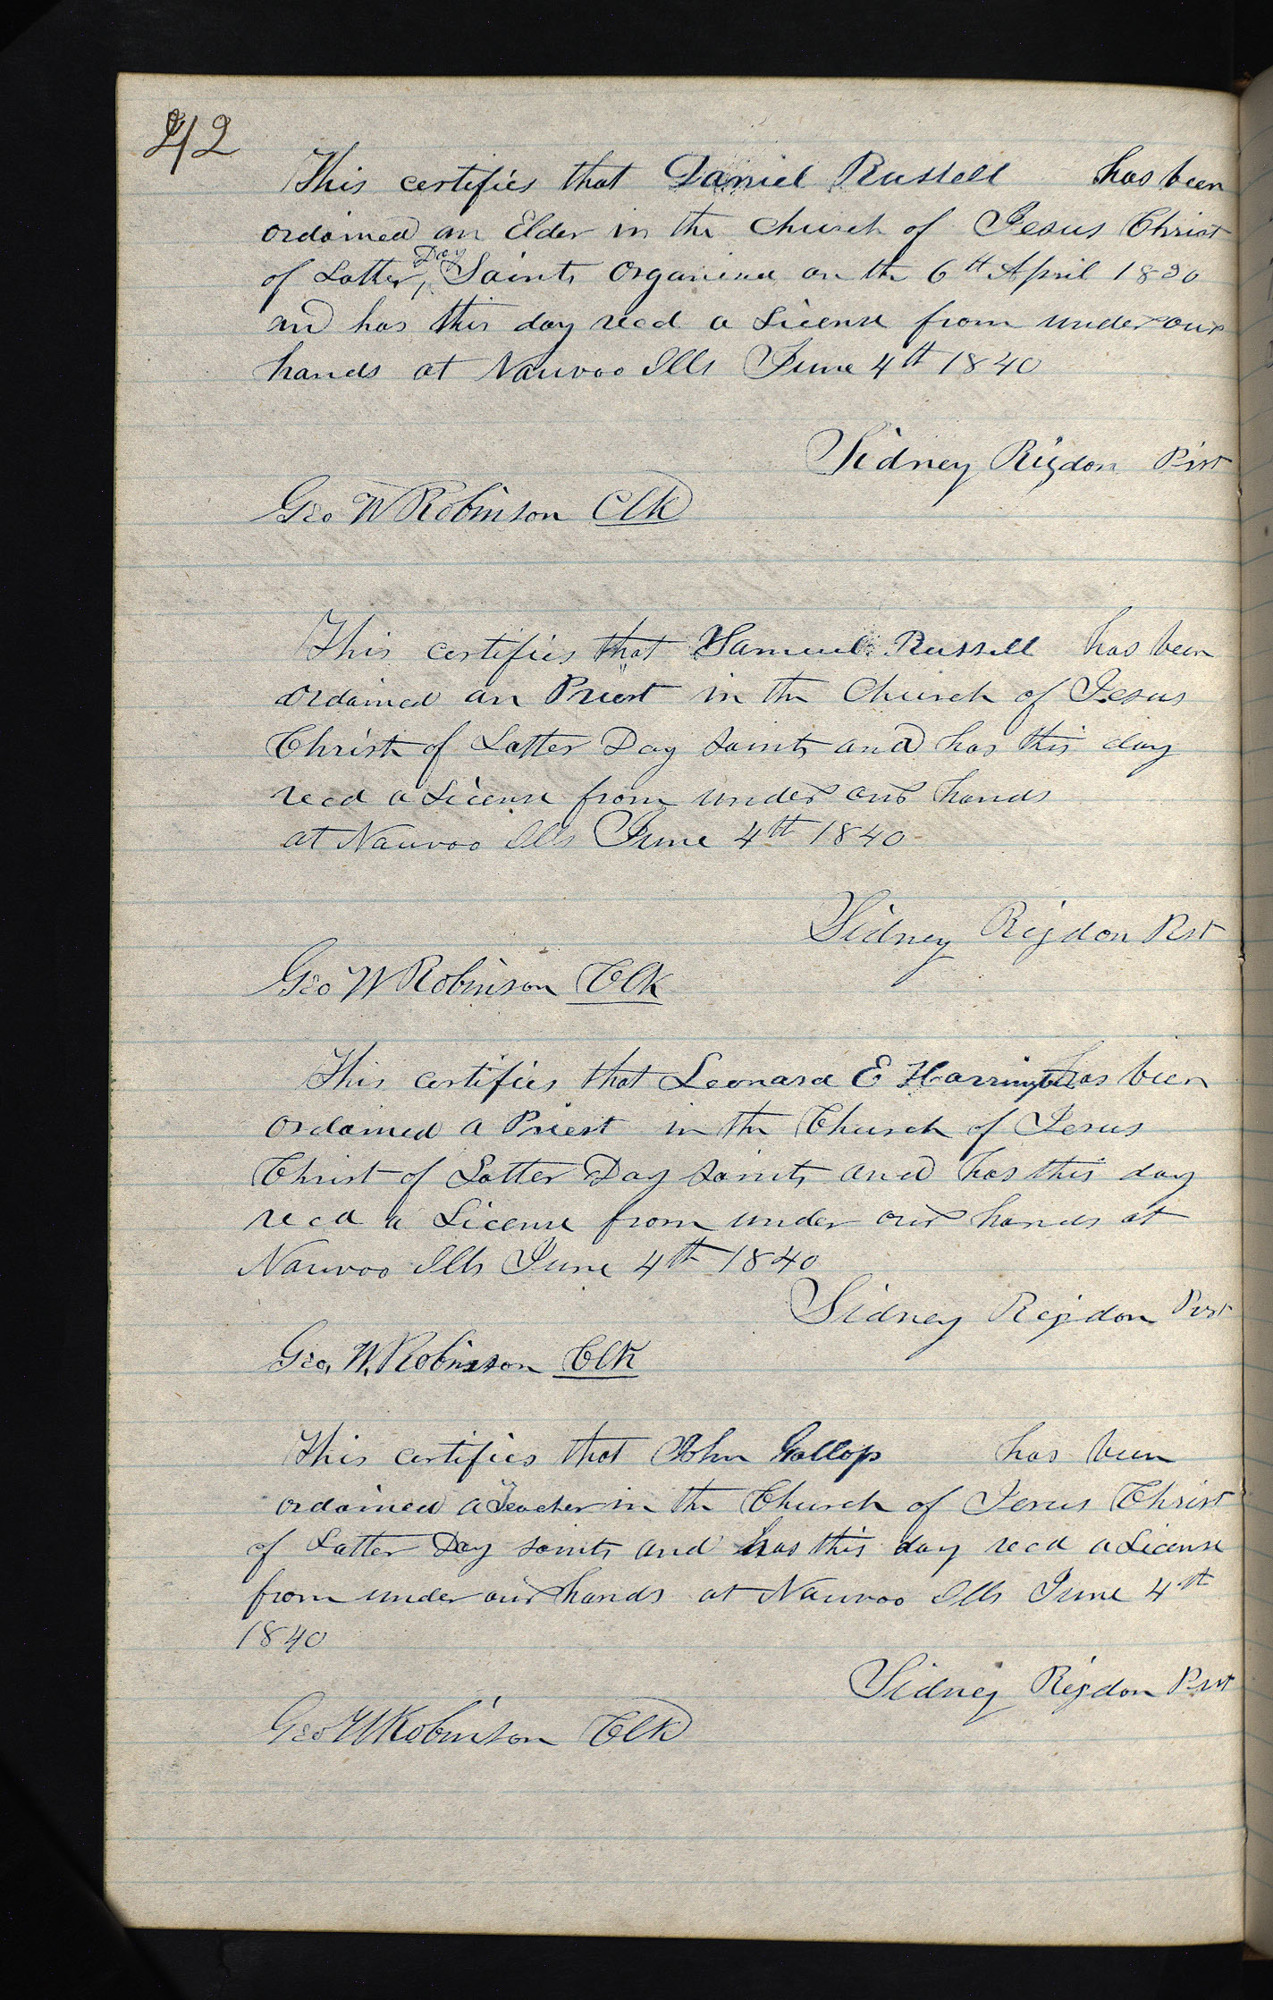 42
This certifies that Daniel Russell has been
ordained an Elder in the church of Jesus Christ
of Latter Day Saints Organized on the 6th April 1830
and has this day recd a License from under our
hands at Nauvoo Ills June 4th 1840
Sidney Rigdon Prst
Geo W Robinson Clk
This certifies that Samuel Russell has been
ordained an Priest in the Church of Jesus
Christ of Latter Day Saints and has this day
recd a License from under our hands
at Nauvoo Ills June 4th 1840
Sidney Rigdon Prst
Geo W Robinson Clk
This certifies that Leonard E Harrington has been
ordained a Priest in the Church of Jesus
Christ of Latter Day Saints and has this day
recd a License from under our hands at
Nauvoo Ills June 4th 1840
Sidney Rigdon Prst
Geo. W. Robinson Clk
This certifies that John Gallop has been
ordained a Teacher in the Church of Jesus Christ
of Latter Day Saints and has this day recd a License
from under our hands at Nauvoo Ills June 4th
1840
Sidney Rigdon Prst
Geo W Robinson Clk